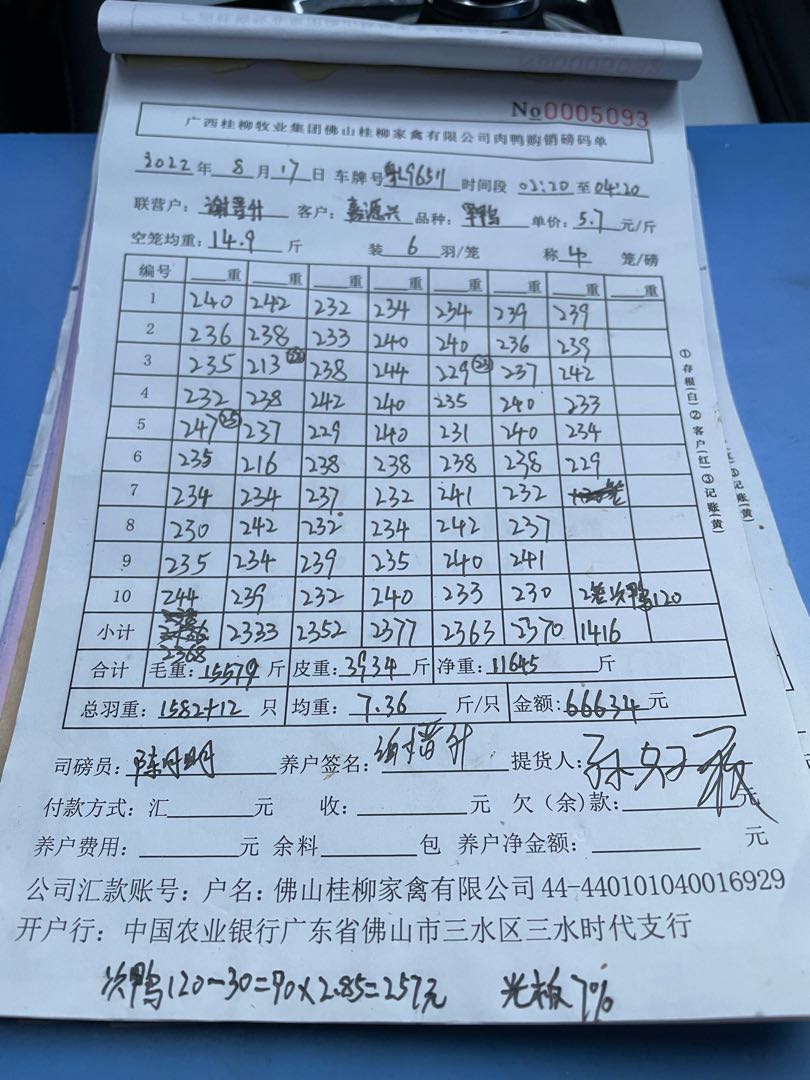 No0005093
广西桂柳牧业集团佛山桂柳家禽有限公司肉鸭购销磅码单
2022年 8 月 17 日 车牌号 9651 时间段 02:20 至 04:20
联营户: 客户: 嘉源兴 品种: 单价: 5.7 元/斤
空笼均重: 14.9 斤 装 6 羽/笼 称 4 笼/磅
编号 重 重 重 重 重 重 重 重
1 240 242 232 234 234 239 239
2 236 238 233 240 240 236 239
3 235 213 238 244 229 (23) 237 242
4 232 238 242 240 235 240 233
5 247 (25) 237 229 240 231 240 234
6 235 216 238 238 238 238 229
7 234 234 237 232 241 232
8 230 242 232 234 242 237
9 235 234 239 235 240 241
10 244 239 232 240 233 230 2笼次鸭120
小计 2368 2333 2352 2377 2363 2370 1416
合计 毛重: 15579 斤 皮重: 3934 斤 净重: 11645 斤
总羽重: 1582+12 只 均重: 7.36 斤/只 金额: 66634 元
①存根(白)②客户(红)③记账(黄)
司磅员: 养户签名: 提货人:
付款方式: 汇 元 收: 元 欠(余)款: 元
养户费用: 元 余料 包 养户净金额: 元
公司汇款账号: 户名: 佛山桂柳家禽有限公司 44-440101040016929
开户行: 中国农业银行广东省佛山市三水区三水时代支行
次鸭120-30=90×2.85=257元 光板7%